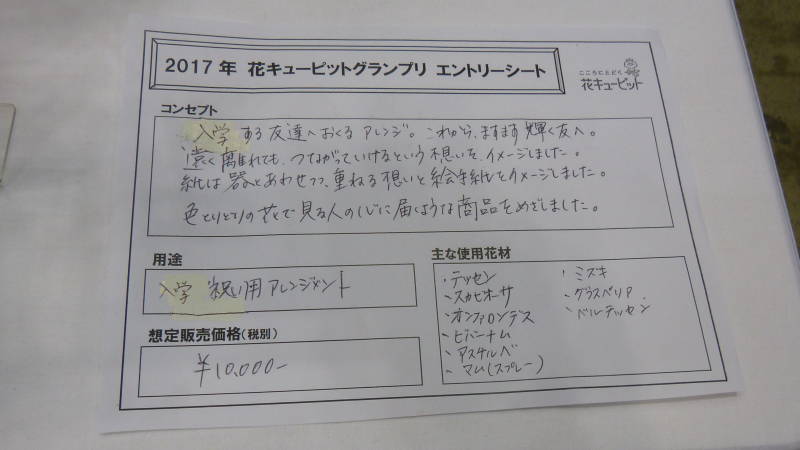 2017年 花キューピットグランプリ エントリーシート
こころにとどく
花キューピット
コンセプト
入学する友達へおくるアレンジ。これから、ますます輝く友へ。
遠く離れても、つながっていけるという想いを、イメージしました。
紙は器とあわせつつ、重ねる想いと絵手紙をイメージしました。
色とりどりの花で見る人の心に届くような商品をめざしました。
用途
入学 祝い用アレンジメント
想定販売価格(税別)
¥10,000-
主な使用花材
・テッセン
・スカビオーサ
・オンファロデス
・ビバーナム
・アスチルベ
・マム(スプレー)
・ミスキ
・グラスペリア
・ベルテッセン